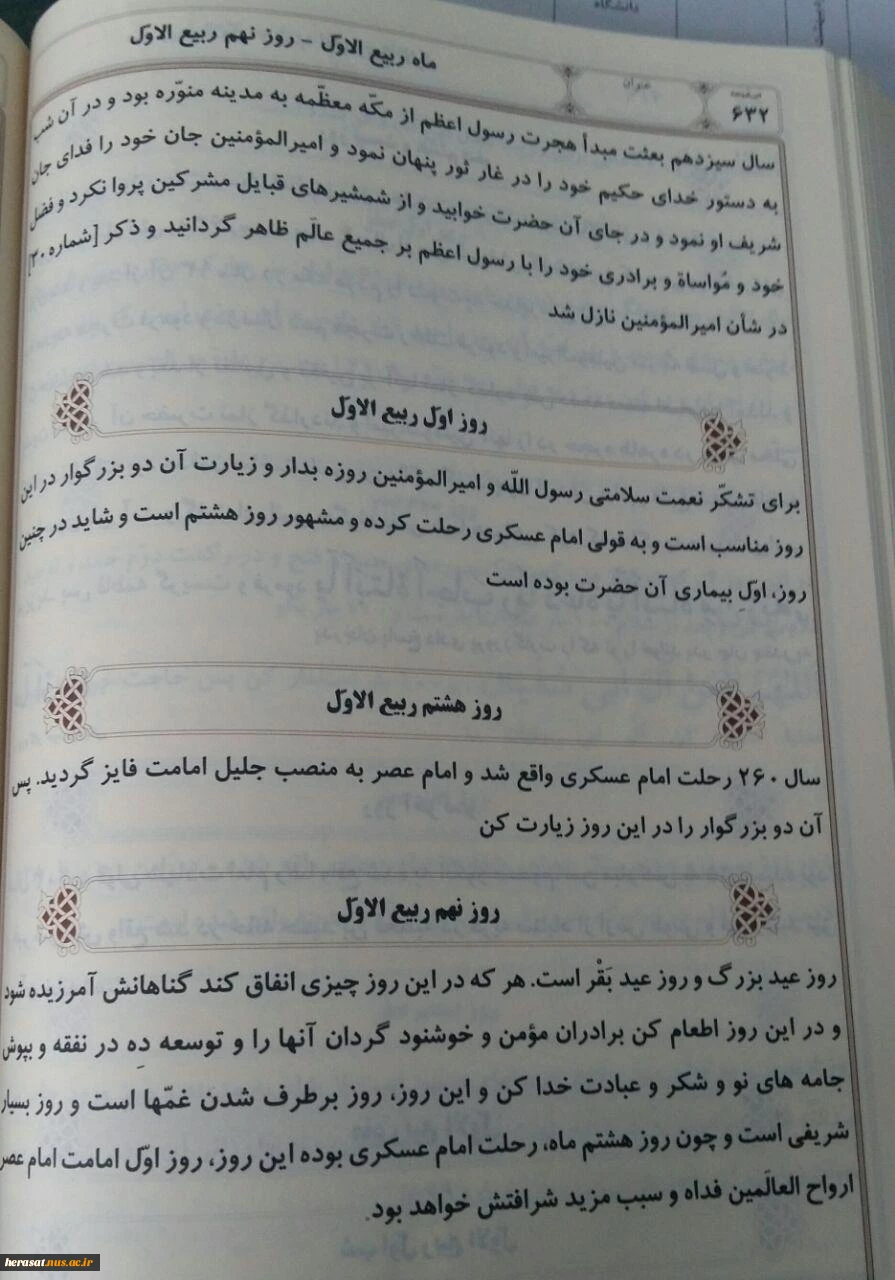 دانشگاه
صفحه
۶۳۲
عنوان
ماه ربیع الاوّل - روز نهم ربیع الاوّل
سال سیزدهم بعثت مبدأ هجرت رسول اعظم از مکّه معظّمه به مدینه منوّره بود و در آن شب
به دستور خدای حکیم خود را در غار ثور پنهان نمود و امیرالمؤمنین جان خود را فدای جان
شریف او نمود و در جای آن حضرت خوابید و از شمشیرهای قبایل مشرکین پروا نکرد و فضل
خود و مُواساة و برادری خود را با رسول اعظم بر جمیع عالَم ظاهر گردانید و ذکر [شماره ۲۰]
در شأن امیرالمؤمنین نازل شد
روز اوّل ربیع الاوّل
برای تشکّر نعمت سلامتی رسول اللّه و امیرالمؤمنین روزه بدار و زیارت آن دو بزرگوار در این
روز مناسب است و به قولی امام عسکری رحلت کرده و مشهور روز هشتم است و شاید در چنین
روز، اوّلِ بیماری آن حضرت بوده است
روز هشتم ربیع الاوّل
سال ۲۶۰ رحلت امام عسکری واقع شد و امام عصر به منصب جلیل امامت فایز گردید. پس
آن دو بزرگوار را در این روز زیارت کن
روز نهم ربیع الاوّل
روز عید بزرگ و روز عید بَقْر است. هر که در این روز چیزی انفاق کند گناهانش آمرزیده شود
و در این روز اطعام کن برادران مؤمن و خوشنود گردان آنها را و توسعه دِه در نفقه و بپوش
جامه های نو و شکر و عبادت خدا کن و این روز، روز برطرف شدن غمّها است و روز بسیار
شریفی است و چون روز هشتم ماه، رحلت امام عسکری بوده این روز، روز اوّل امامت امام عصر
ارواح العالَمین فداه و سبب مزید شرافتش خواهد بود.
herasat.nus.ac.ir